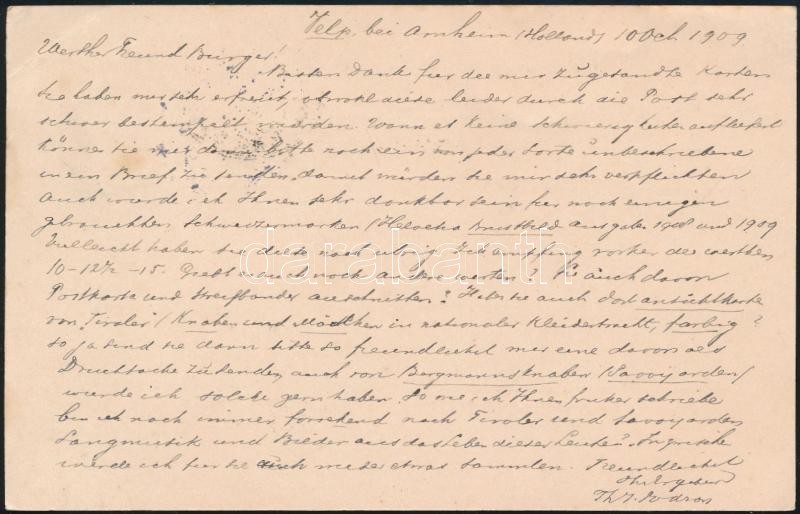 Velp, bei Arnheim (Holland) 10 Oct 1909
Werther Freund Burger!
Besten Dank fur die mir zugesandte Karten
sie haben mir sehr erfreut, obwohl diese leider durch die Post sehr
schwer bestempelt wurden. Wann es keine schwierigkeiten aufliefert
können sie mir dann bitte noch ein von jeder Sorte unbeschriebene
in ein Brief zu senden, damit würden sie mir sehr verpflichten
Auch wurde ich Ihnen sehr dankbar sein fur noch einigen
gebrauchten Schweizermarken (Helvetia Brustbild ausgabe 1908 und 1909
Vielleicht haben sie diese noch ubrig
10-12½-15. Giebt es auch noch andere werten? Sie auch davon
Postkarte und Streifbander ausschnitten? Habe sie auch dort ansichtkarte
von Tiroler (Knaben und Mädchen in nationaler Kleidertracht, farbig?
so ja sind sie dann bitte so freundlichst mir eine davon als
Drucksache zu senden, auch von Bergmannsknaben (Savoyarden)
wurde ich solche gern haben. So wie ich Ihnen fruher schriebe
bin ich noch immer forschend nach Tiroler und Savoyarden
Sangmusik und Bilder aus das Leben dieser Leute.
werde ich fur sie auch mit etwas sammlen. Freundlichst
Ihr Ergebener
Th. J.
darabanth